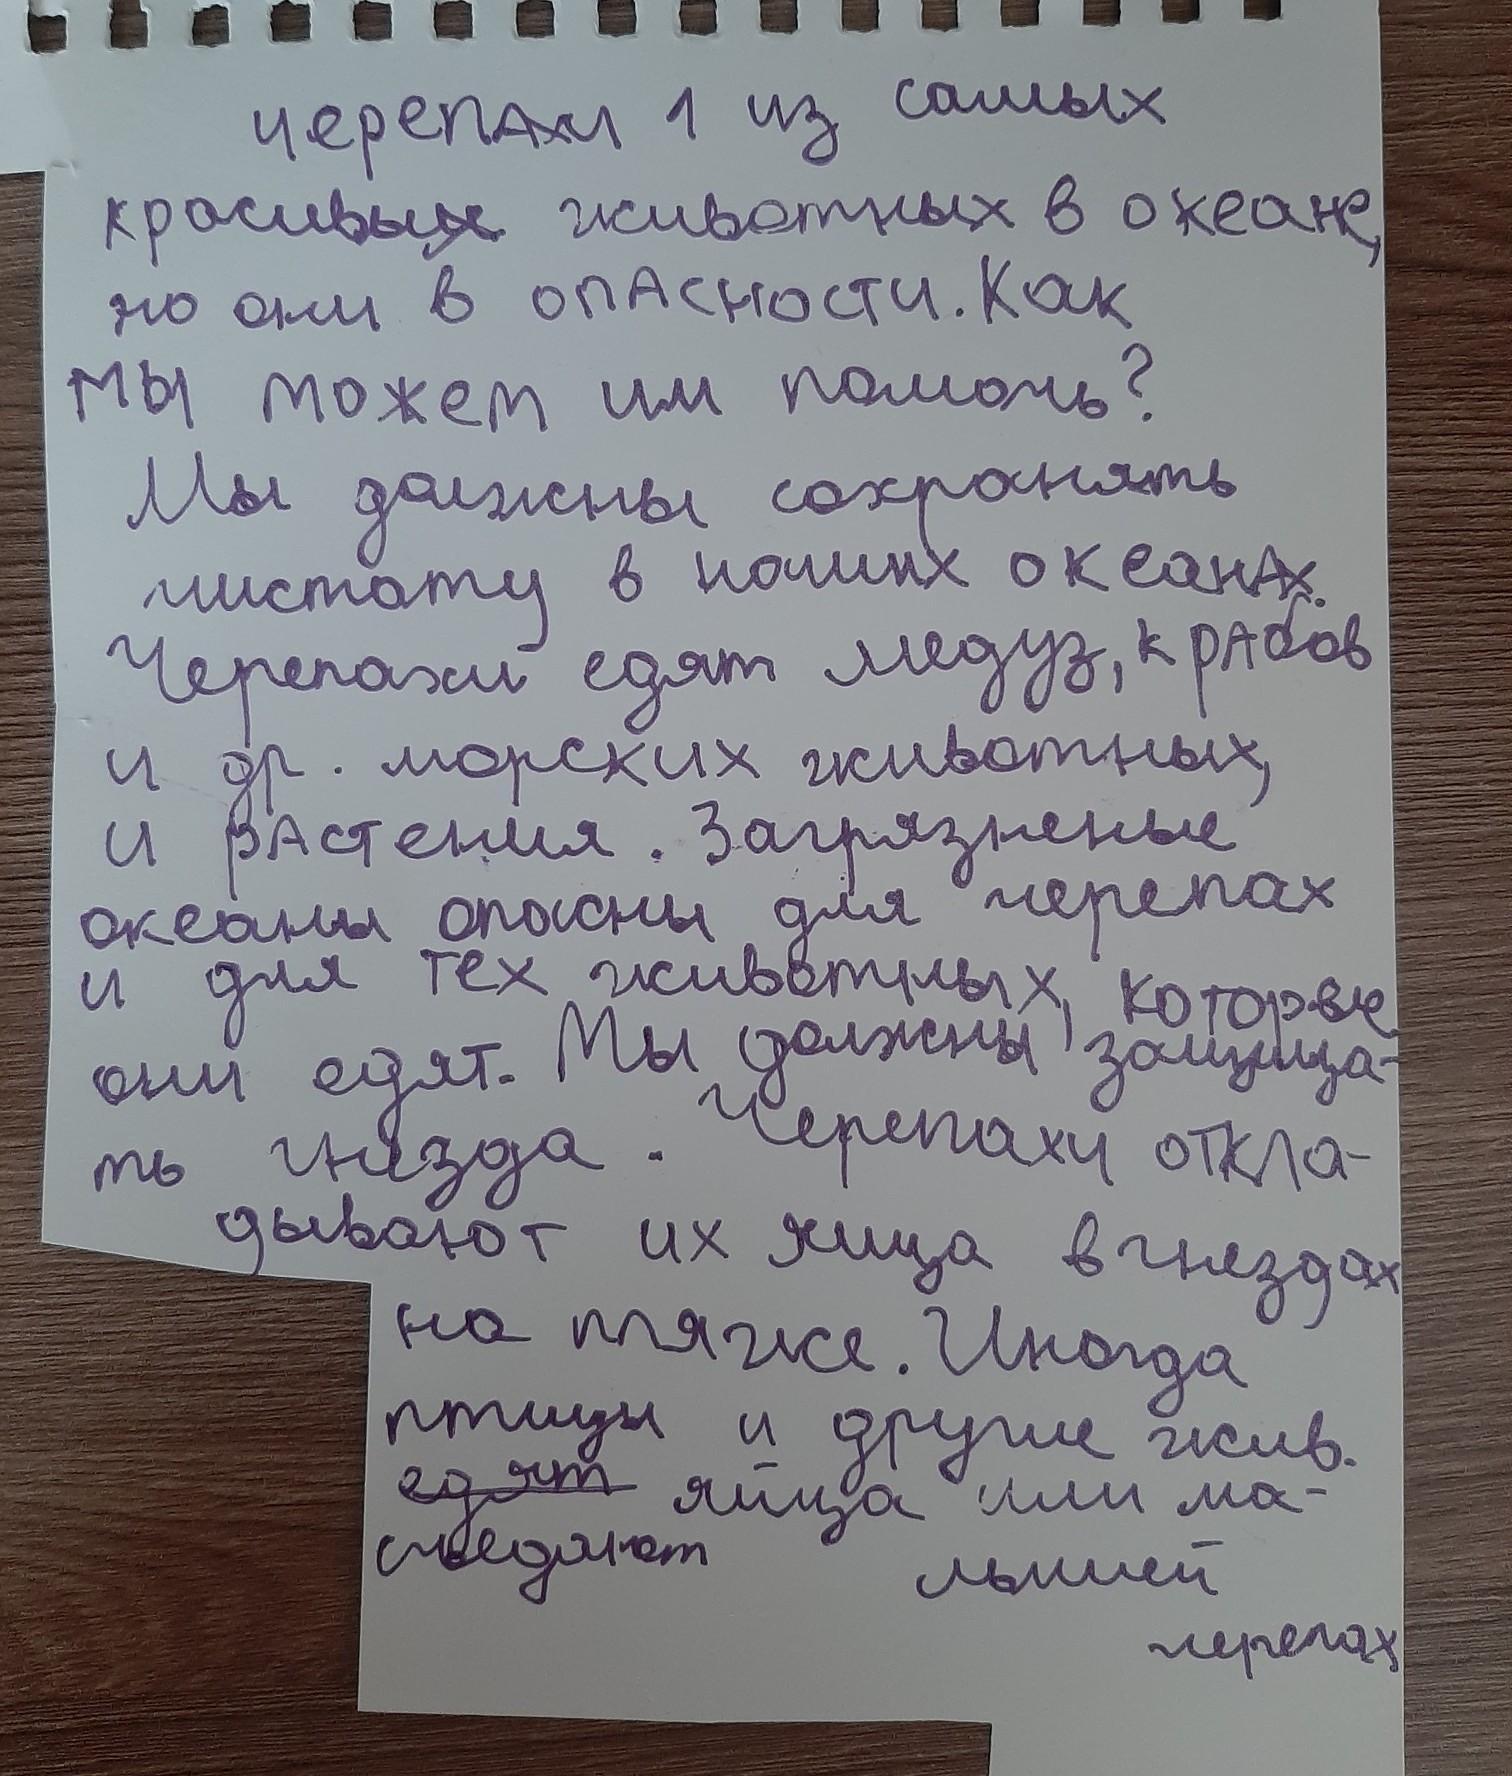 черепахи 1 из самых
красивых животных в океане,
но они в опасности. Как
мы можем им помочь?
Мы должны сохранять
чистоту в наших океанах.
Черепахи едят медуз, крабов
и др. морских животных,
и растения. Загрязненые
океаны опасны для черепах
и для тех животных, которые
они едят. Мы должны защища-
ть гнёзда. Черепахи откла-
дывают их яйца в гнездах
на пляже. Иногда
птицы и другие жив.
едят яйца или ма-
съедают лышей
черепах